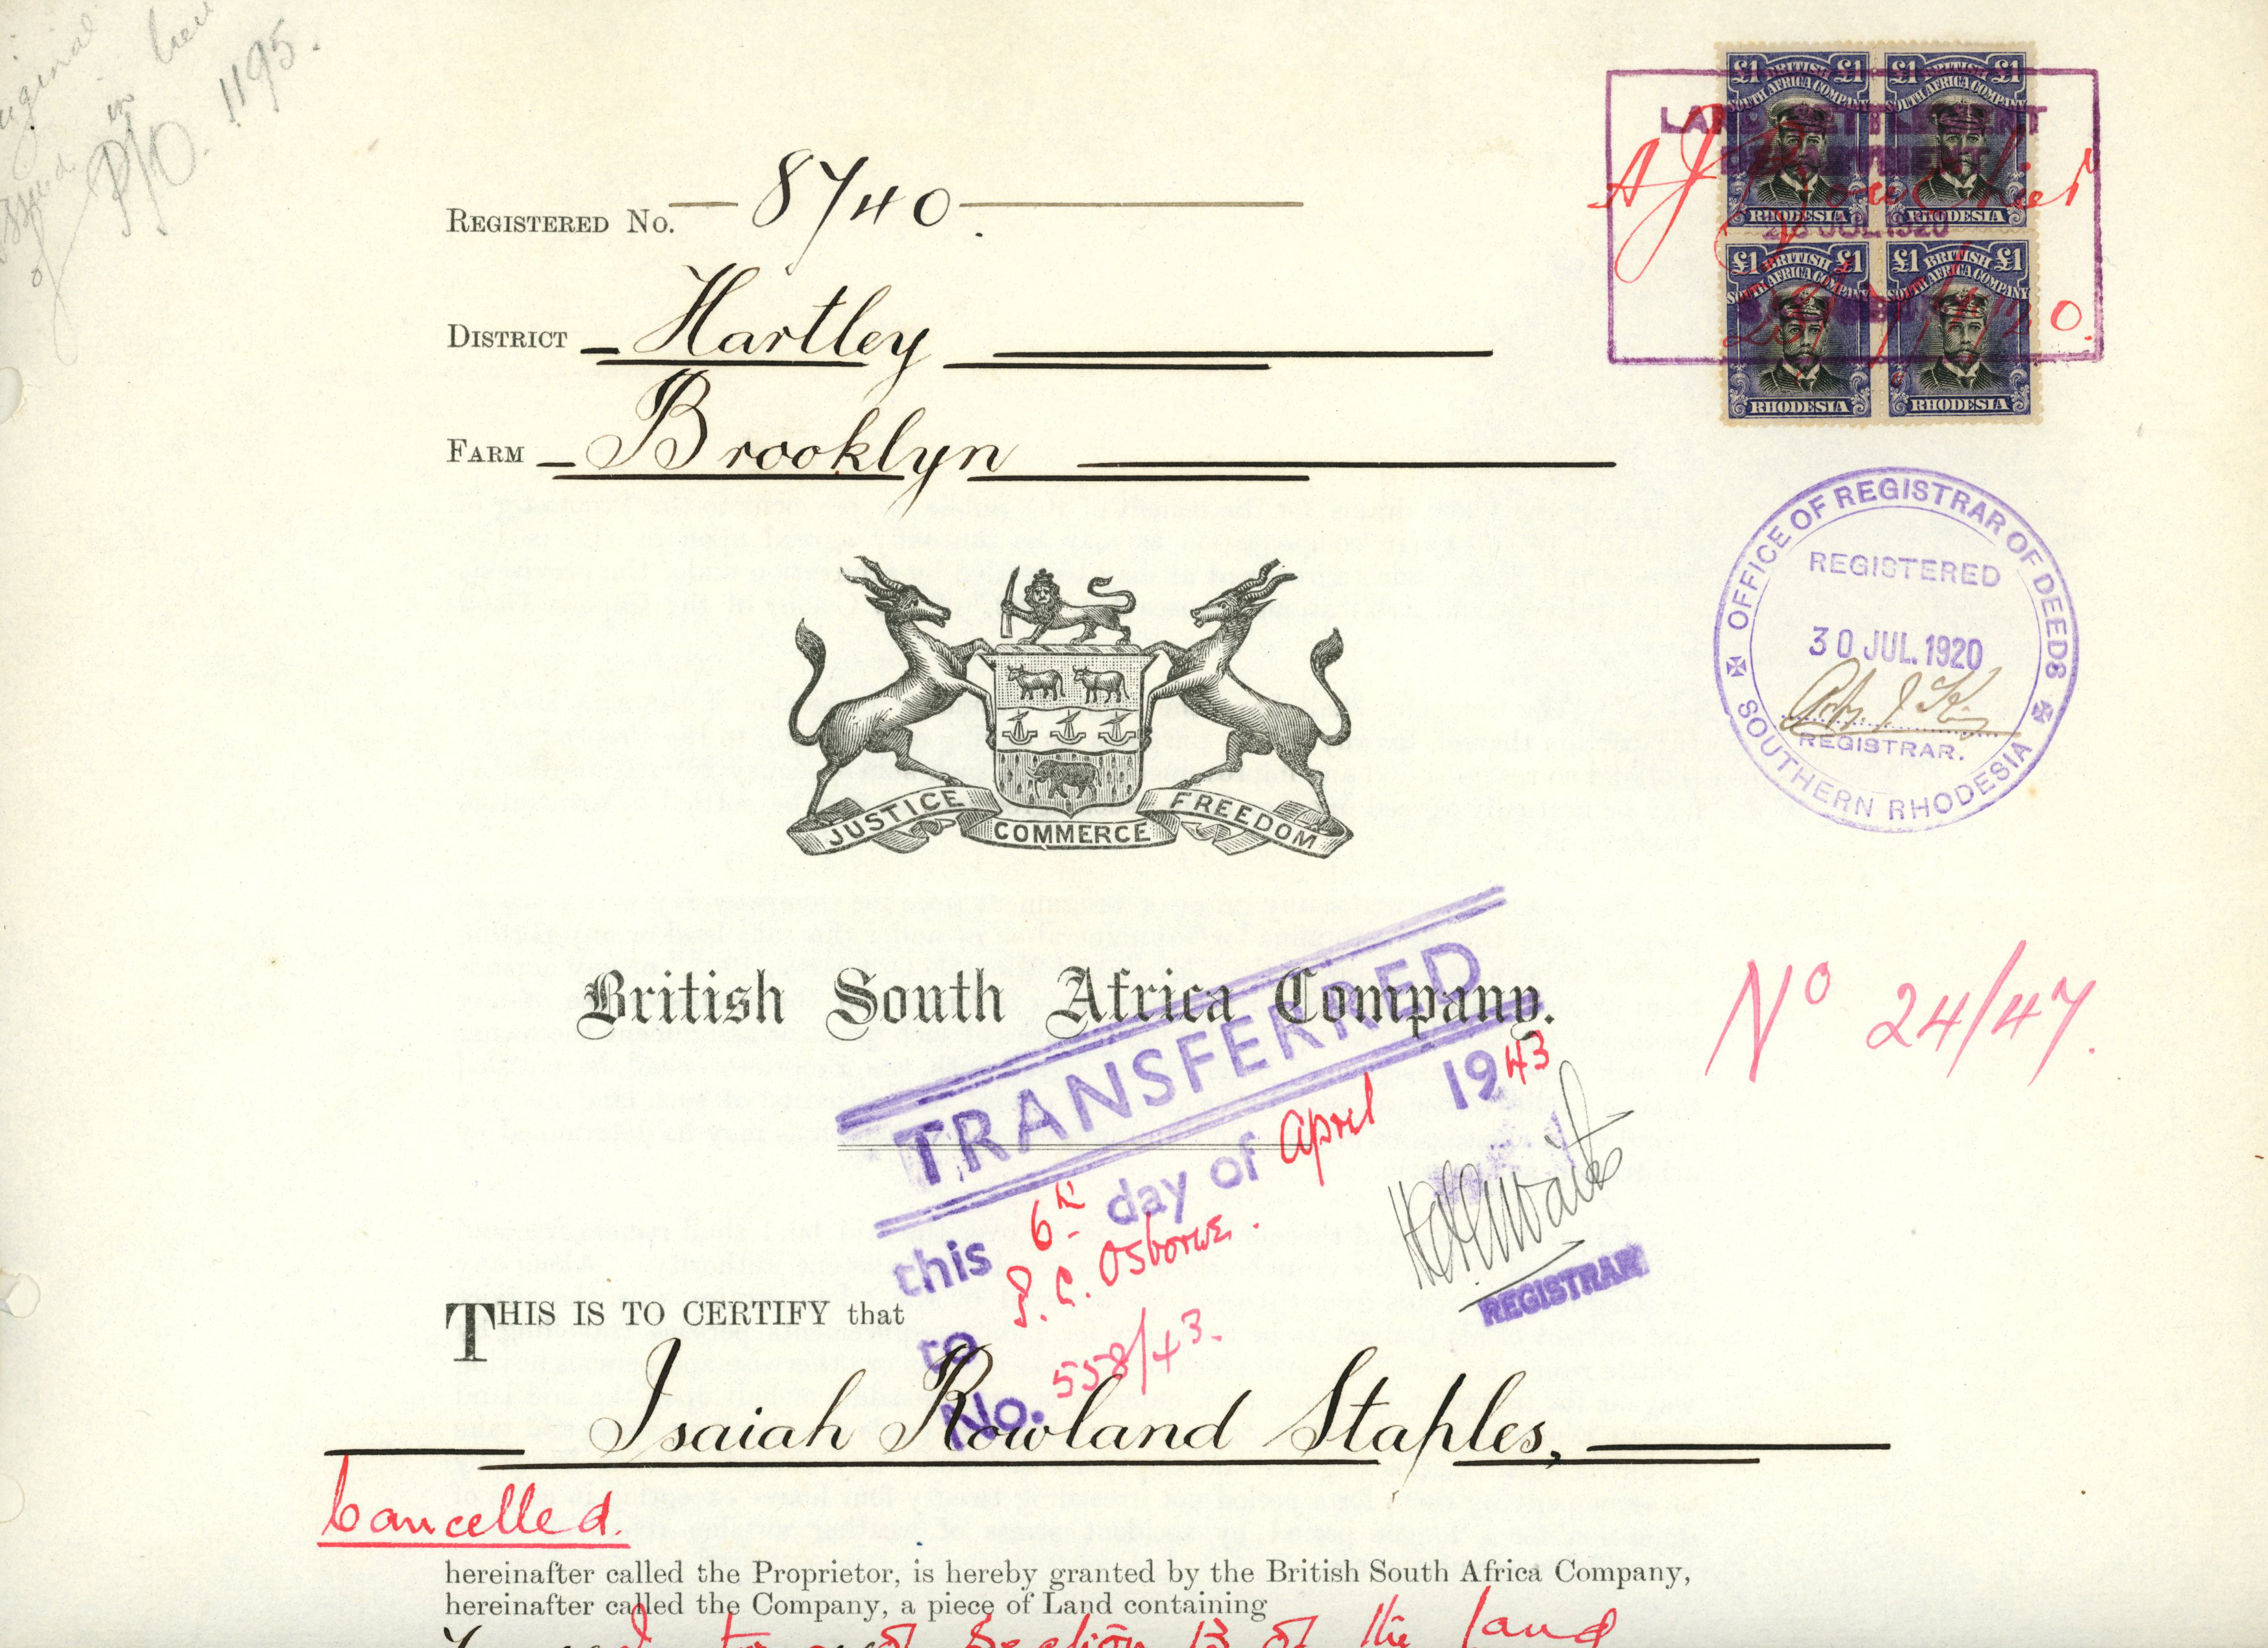 in lieu
P/O. 1195.
REGISTERED No. 8740.
DISTRICT Hartley
FARM Brooklyn
£1 BRITISH £1
SOUTH AFRICA COMPANY
RHODESIA
£1 BRITISH £1
SOUTH AFRICA COMPANY
RHODESIA
£1 BRITISH £1
SOUTH AFRICA COMPANY
RHODESIA
£1 BRITISH £1
SOUTH AFRICA COMPANY
RHODESIA
LAND SETTLEMENT
DEPARTMENT
28 JUL 1920
OFFICE OF REGISTRAR OF DEEDS
REGISTERED
30 JUL. 1920
REGISTRAR.
SOUTHERN RHODESIA
JUSTICE COMMERCE FREEDOM
British South Africa Company.
No 24/47.
TRANSFERRED
this 6th day of April 1943
to S. C. Osborne.
No. 558/43.
REGISTRAR
THIS IS TO CERTIFY that
Isaiah Rowland Staples,
Cancelled.
hereinafter called the Proprietor, is hereby granted by the British South Africa Company,
hereinafter called the Company, a piece of Land containing
Section B of the land